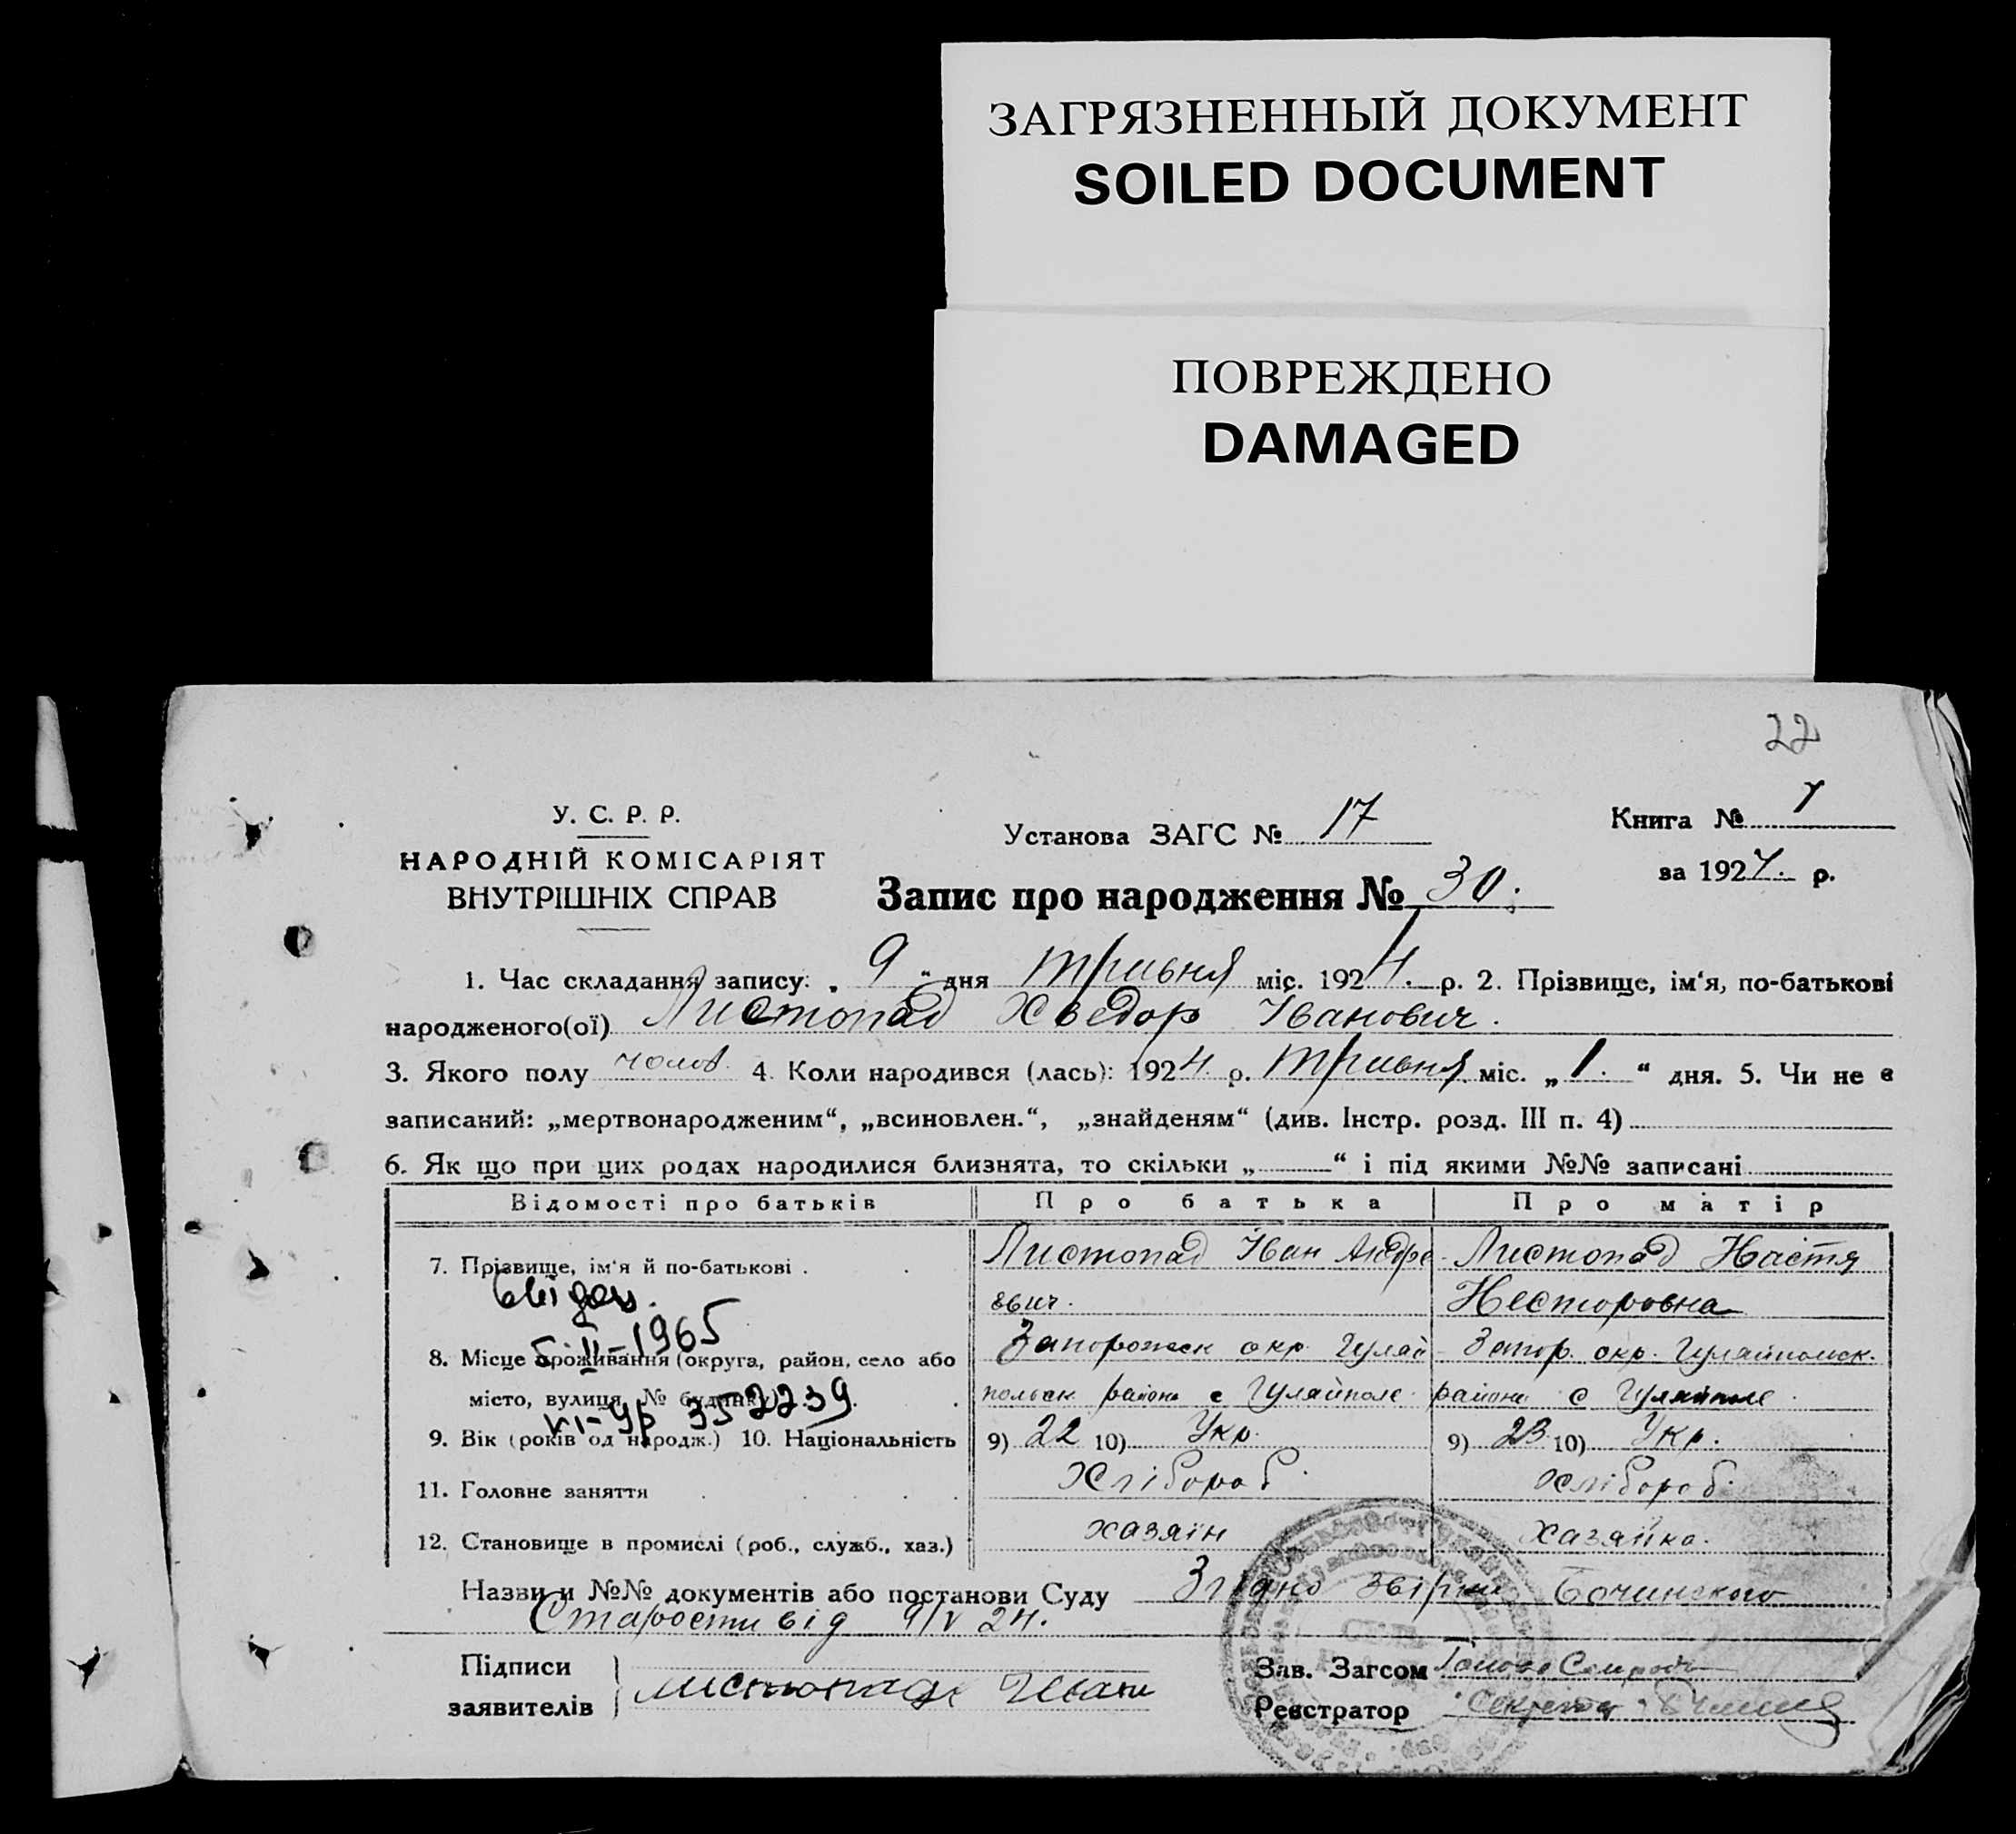 ЗАГРЯЗНЕННЫЙ ДОКУМЕНТ
SOILED DOCUMENT
ПОВРЕЖДЕНО
DAMAGED
22
У. С. Р. Р.
НАРОДНІЙ КОМІСАРІЯТ
ВНУТРІШНІХ СПРАВ
Установа ЗАГС № 17
Книга № 1
за 1924. р.
Запис про народження № 30.
1. Час складання запису: „ 9 “ дня травня міс. 1924. р. 2. Прізвище, ім‘я, по-батькові
народженого(ої) Листопад Хведор Іванович.
3. Якого полу чолов. 4. Коли народився (лась): 1924 р. травня міс. „ 1. “ дня. 5. Чи не є
записаний: „мертвонародженим“, „всиновлен.“, „знайденям“ (див. Інстр. розд. III п. 4)
6. Як що при цих родах народилися близнята, то скільки „ “ і під якими №№ записані
Відомості про батьків Про батька Про матір
7. Прізвище, ім‘я й по-батькові . Листопад Іван Андре- Листопад Настя
евич. Несторовна
5-II-1965
8. Місце проживання (округа, район, село або Запорожск окр. Гуляй Запор. окр. Гуляйпольск.
місто, вулиця, № будинку) польск района с Гуляйполе района с Гуляйполе
VI-УР 352239.
9. Вік (років од народж.) 10. Національність 9) 22 10) Укр. 9) 23 10) Укр.
11. Головне заняття Хлібороб. хлібороб.
12. Становище в промислі (роб., служб., хаз.) хазяїн хазяйка.
Назви и №№ документів або постанови Суду Згідно звірки
Старости від 9/V 24.
Підписи Зав. Загсом Голова
заявителів Листопад Иван Реєстратор Секретар